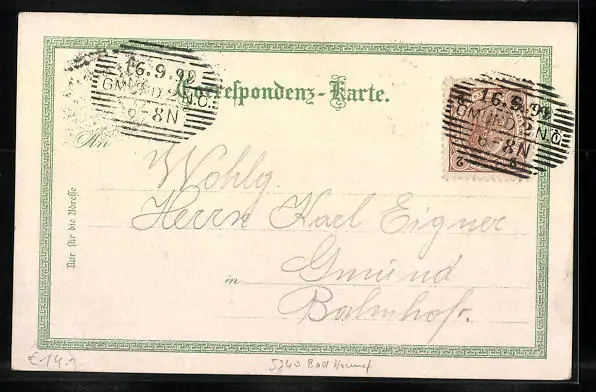 16.9.99
GMÜND N.Ö.
6-8N
Correspondenz-Karte.
16.9.99
GMÜND N.Ö.
6-8N
2 2
An
Wohlg.
Herrn Karl Eigner
in Gmünd
Bahnhof.
Nur für die Adresse
€ 14.-
5340 Bad Honnef